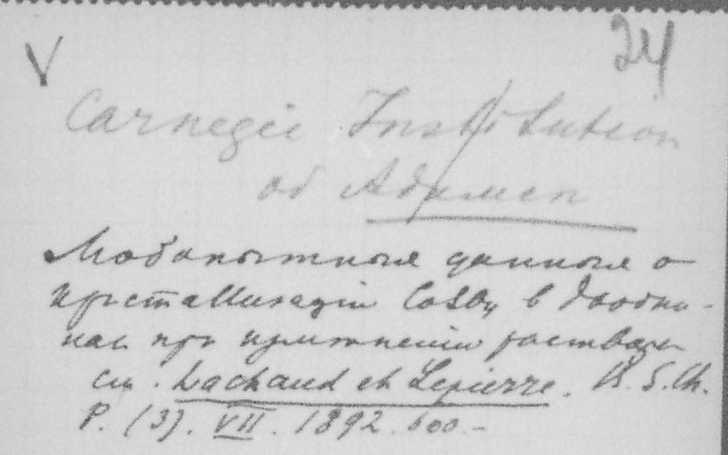 V
24
Carnegie Institution
об Адамсн
Любопытныя данныя о
кристаллизацiи CoSO4 в двойни-
ках при
см. Lachaud et Lepierre. B. S. Ch.
P. (3). VII. 1892. 600.-